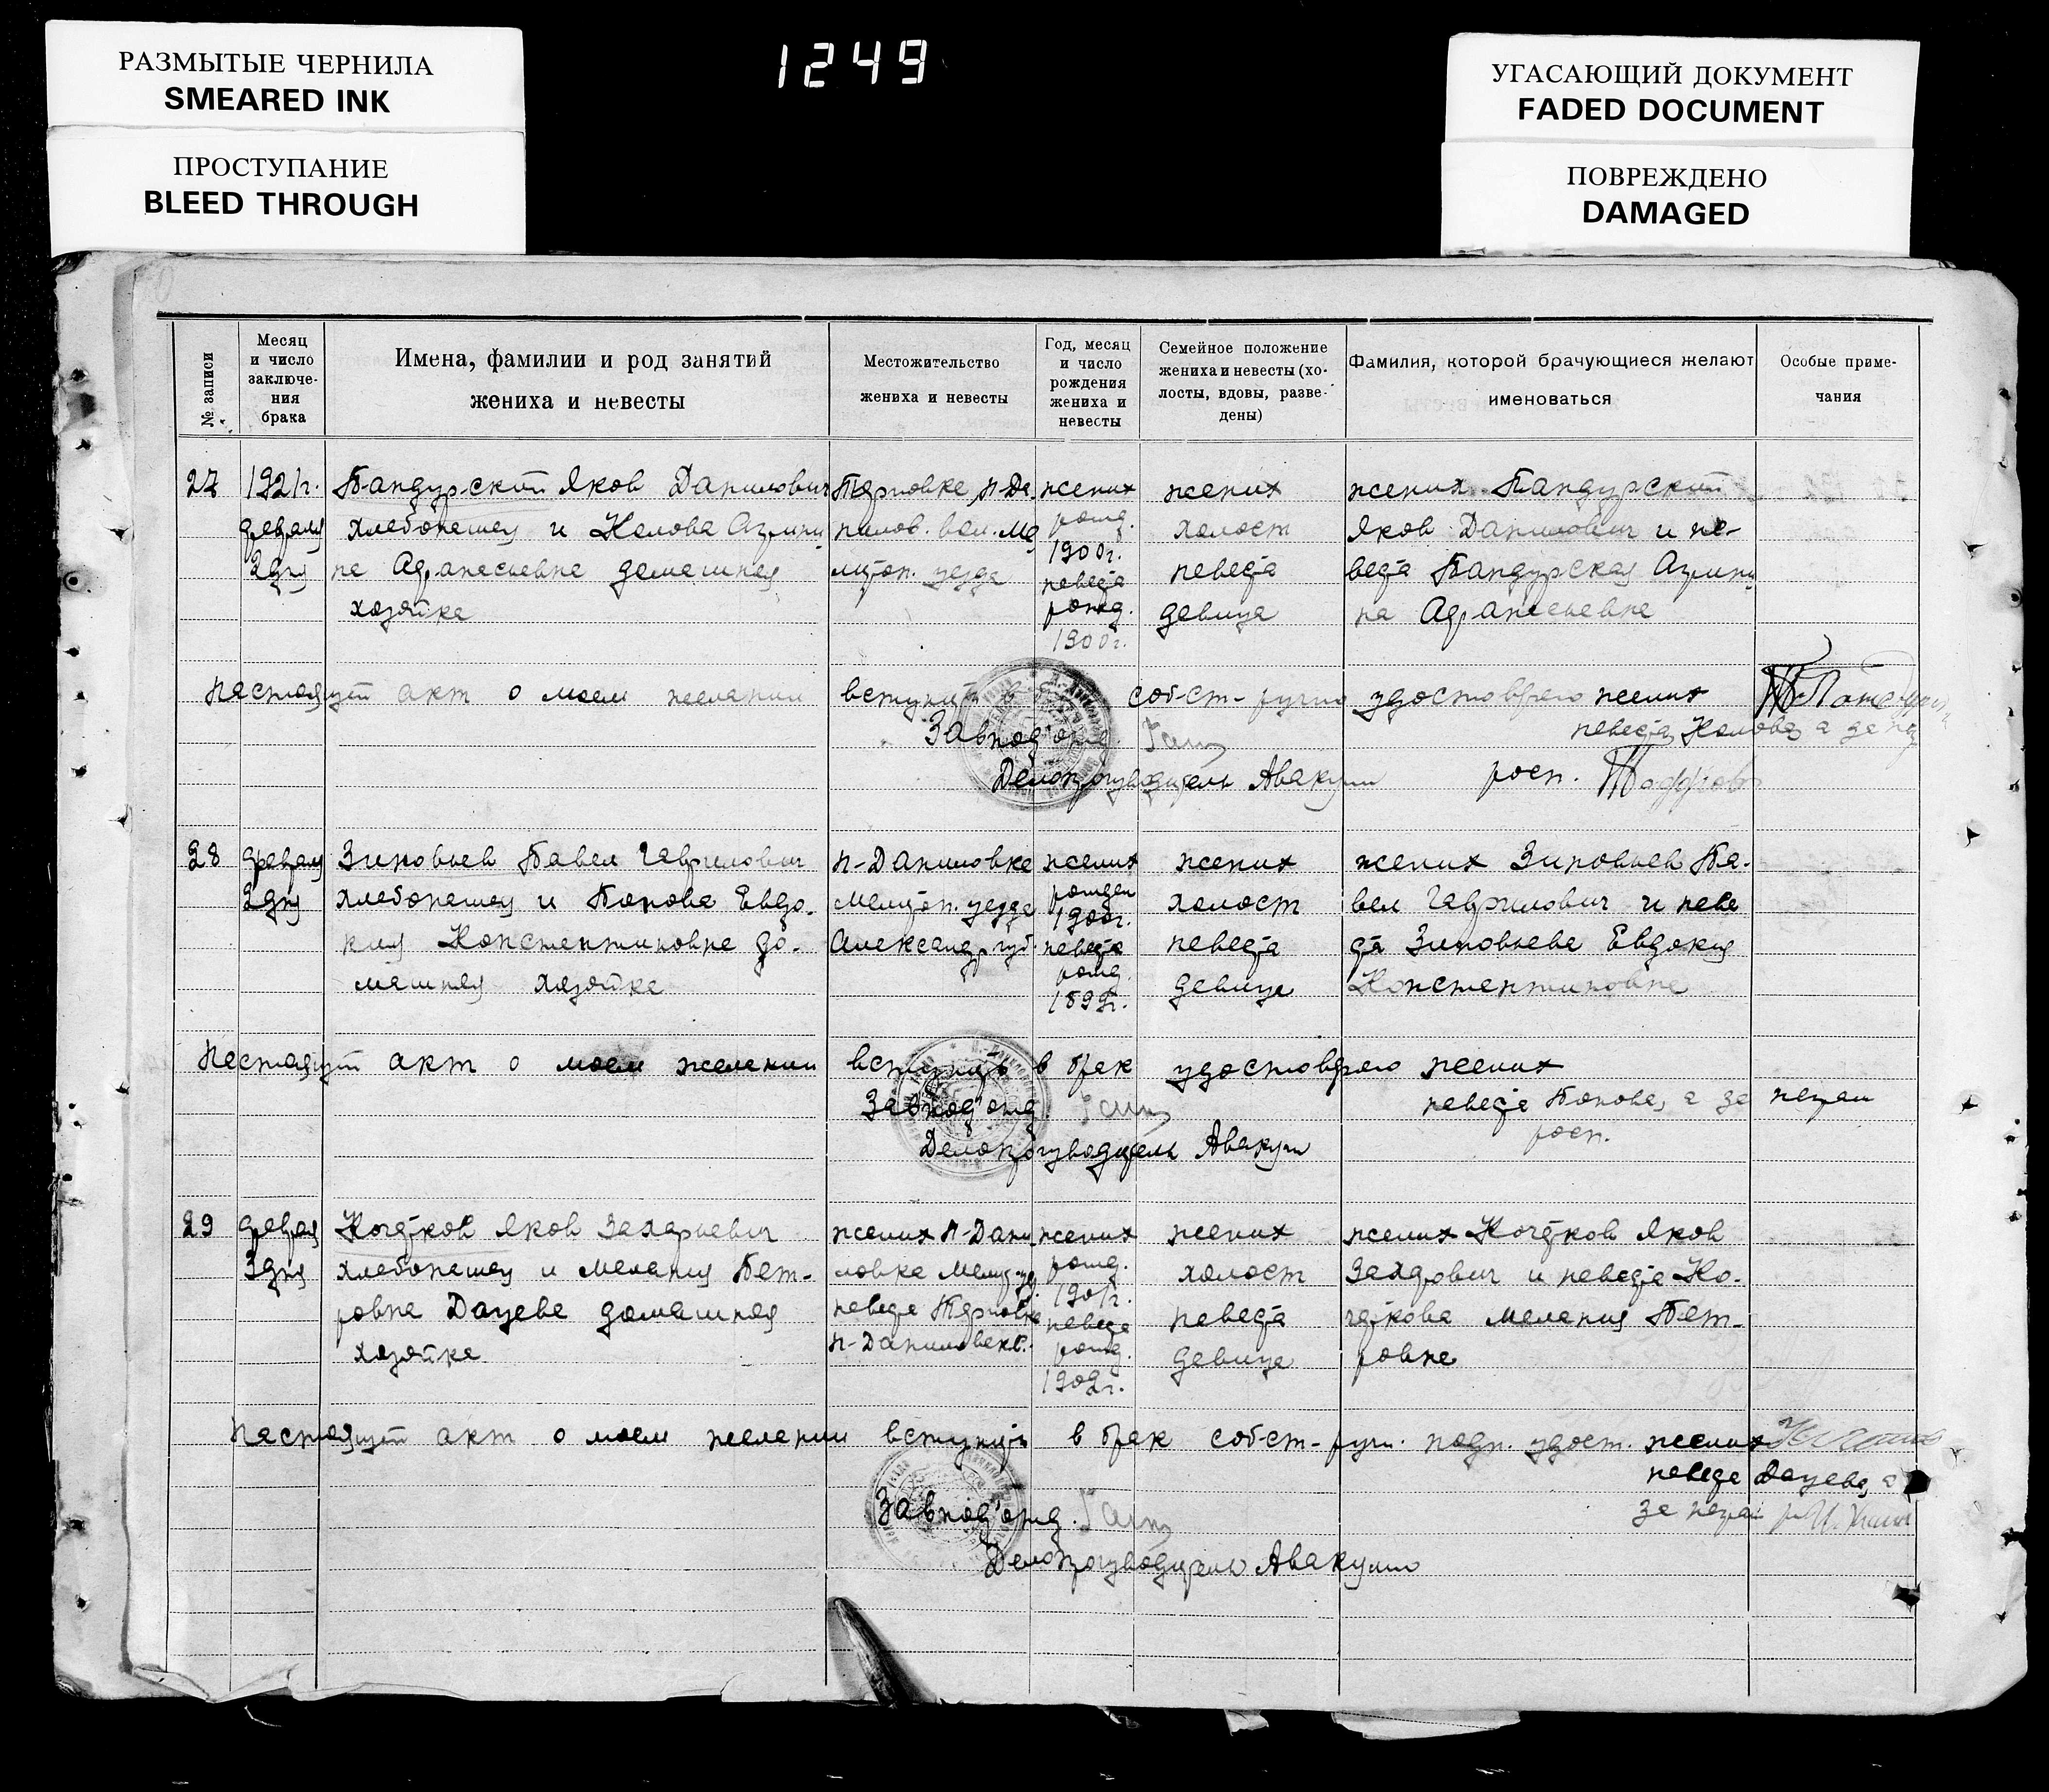 РАЗМЫТЫЕ ЧЕРНИЛА
SMEARED INK
ПРОСТУПАНИЕ
BLEED THROUGH
1249
УГАСАЮЩИЙ ДОКУМЕНТ
FADED DOCUMENT
ПОВРЕЖДЕНО
DAMAGED
№ записи
Месяц
и число
заключе-
ния
брака
Имена, фамилии и род занятий
жениха и невесты
Местожительство
жениха и невесты
Год, месяц
и число
рождения
жениха и
невесты
Семейное положение
жениха и невесты (хо-
лосты, вдовы, разве-
дены)
Фамилия, которой брачующиеся желают
именоваться
Особые приме-
чания
27
1921г.
февраля
3 дня
Бандурский Яков Данилович
хлебопашец и
домашняя
хозяйка
жених
рожд.
1900г.
невеста
рожд.
1900г.
жених
холост
невеста
девица
жених Бандурский
Яков Данилович и не-
веста Бандурская
Настоящий акт о моем желании вступить в собст-ручно удостоверяю жених
Завподотд.
невеста а за
Делопроизводитель Авакум
росп.
28
февраля
3 дня
Зиновьев Павел Гаврилович
хлебопашец и Попова Евдо-
кия Константиновна до-
машняя хозяйка
Н-Даниловка
Мелитоп. уезда
Александр. губ.
жених
рожден
1900г.
невеста
рожд.
жених
холост
невеста
девица
жених Зиновьев Па-
вел Гаврилович и неве
ста Зиновьева Евдокия
Константиновна
Настоящий акт о моем желании вступить в брак удостоверяю жених
Завподотд.
невеста Попова, а за неграм
росп.
Делопроизводитель Авакум
29
февраля
3 дня
Кочетков Яков Захарьевич
хлебопашец и Мелания Пет-
ровна Дацева домашняя
хозяйка
жених Н-Дани-
ловка Мелит. уез.
невеста
жених
рожд.
1901г.
невеста
рожд.
1902г.
жених
холост
невеста
девица
жених Кочетков Яков
Захарович и невеста Ко-
четкова Мелания Пет-
ровна
Настоящий акт о моем желании вступить в брак собст-ручн. подп. удост. жених
невеста Дацева, а
за неграм
Завподотд.
Делопроизводитель Авакум